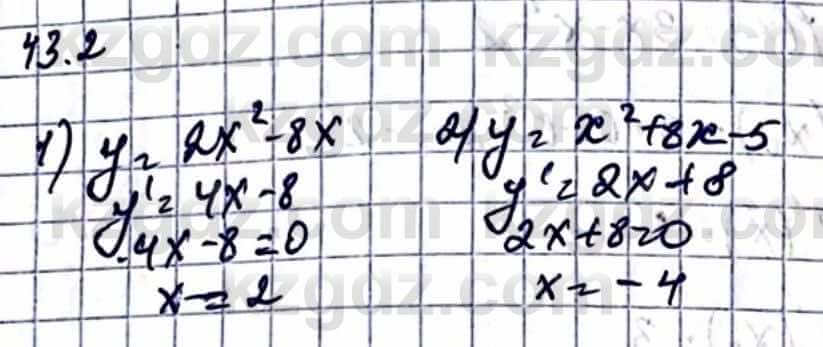 43.2
1) y = 2x² - 8x
y' = 4x - 8
4x - 8 = 0
x = 2
2) y = x² + 8x - 5
y' = 2x + 8
2x + 8 = 0
x = -4
kzgdz.com kzgdz.com
kzgdz.com kzgdz.com
kzgdz.com kzgdz.com
kzgdz.com kzgdz.com